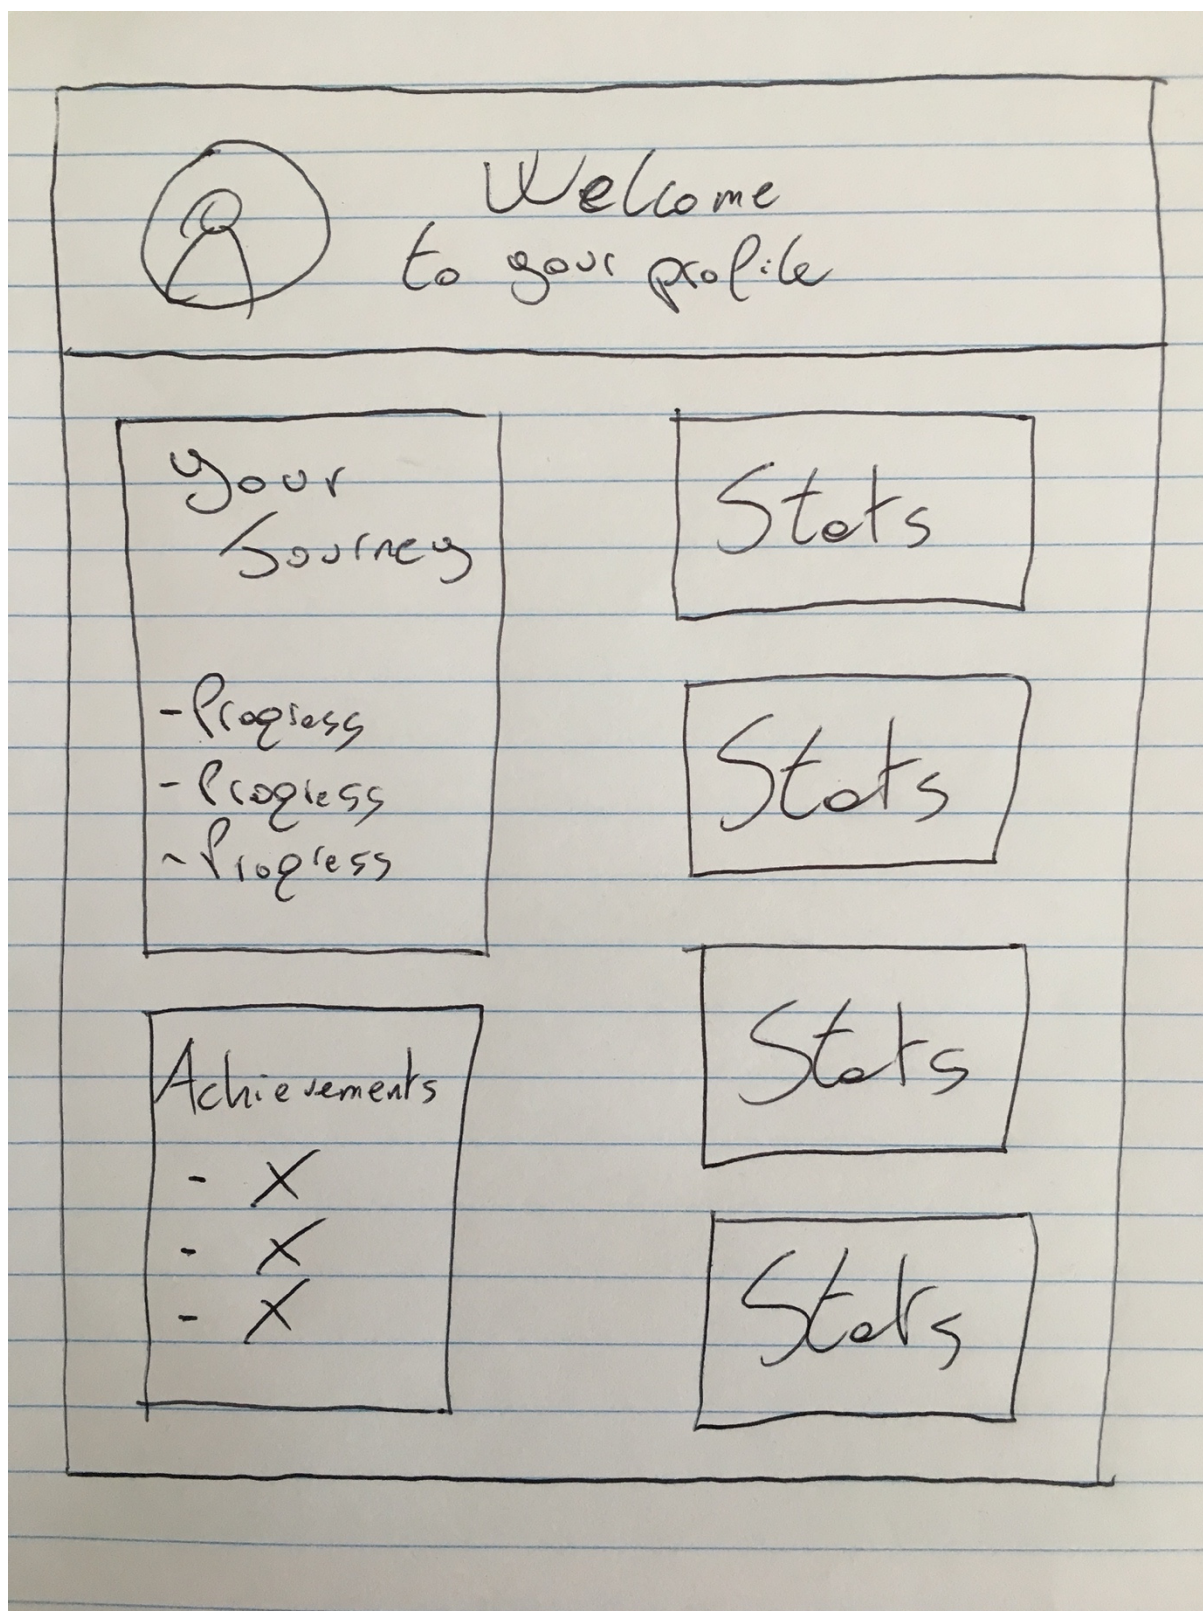 Welcome
to your profile
Your
Journey
- Progress
- Progress
- Progress
Achievements
- X
- X
- X
Stats
Stats
Stats
Stats